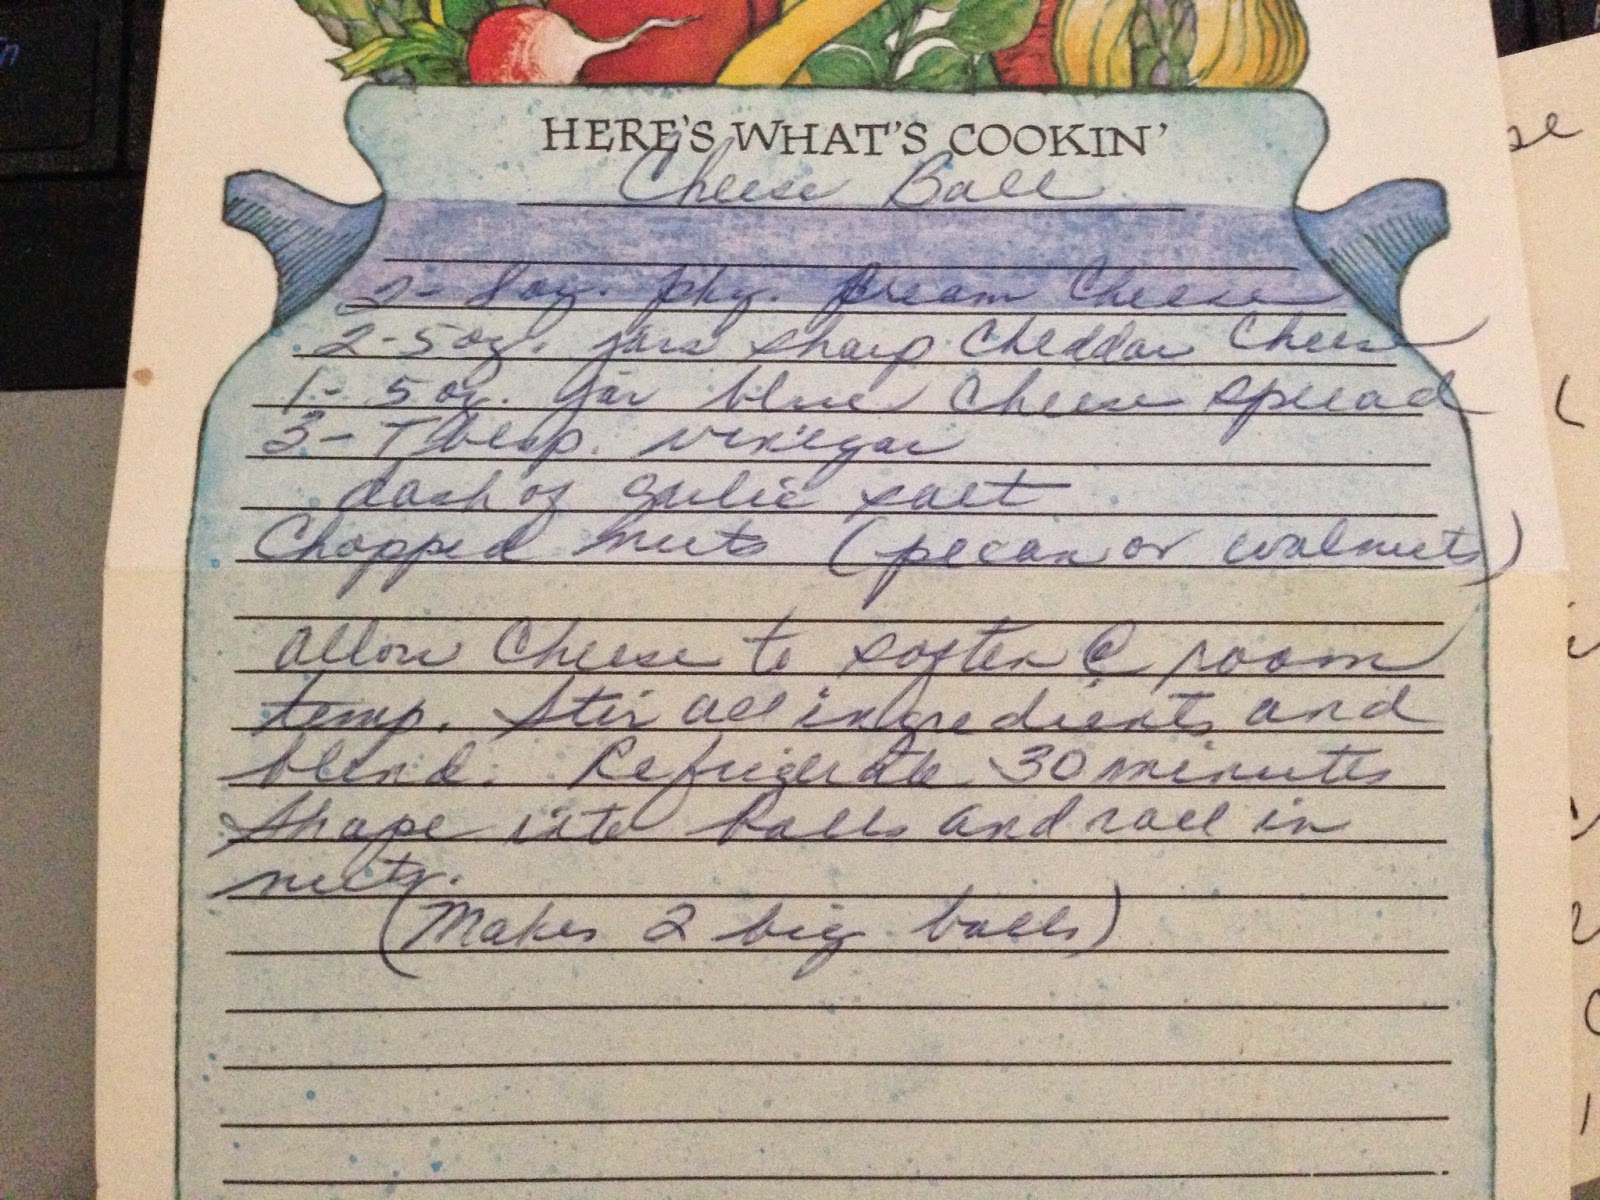 HERE'S WHAT'S COOKIN'
Cheese Ball
2- 8 oz. pkg. Cream Cheese
2-5 oz. jars sharp Cheddar Cheese
1- 5 oz. jar blue Cheese spread
3- Tblesp. vinegar
dash of garlic salt
Chopped nuts (pecan or walnuts)
allow Cheese to soften @ room
temp. Stir all ingredients and
blend. Refrigerate 30 minutes
Shape into balls and roll in
nuts.
(Makes 2 big balls)